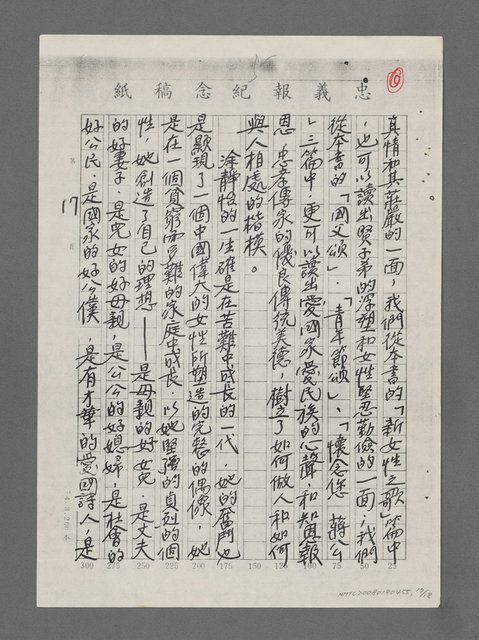 忠義報紀念稿紙
10
真情和其莊嚴的一面，我們從本書的「新女性之歌」篇中
，也可以讀出賢子弟的浮塑和女性堅忍勤儉的一面，我們
從本書的「國父頌」．「青年節頌」、「懷念您 蔣公
」三篇中，更可以讀出愛國家愛民族的心聲，和知恩報
恩，忠孝傳家的優良傳統美德，樹立了如何做人和如何
與人相處的楷模。
涂靜怡的一生確是在苦難中成長的一代，她的奮鬥也
是顯現了一個中國偉大的女性所塑造的完整的偶像，她
是在一個貧窮而多難的家庭中成長，以她堅強的貞烈的個
性，她創造了自己的理想——是母親的好女兒，是丈夫
的好妻子，是兒女的好母親，是公公的好媳婦，是社會的
好公民，是國家的好公僕，是有才華的愛國詩人，是
第 17 頁
300 275 250 225 200 175 150 125 100 75 50 25
NMTL20080180455, 17/18